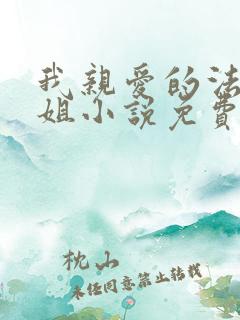 我親愛的法
姐小說免費
枕山
未经同意禁止转载